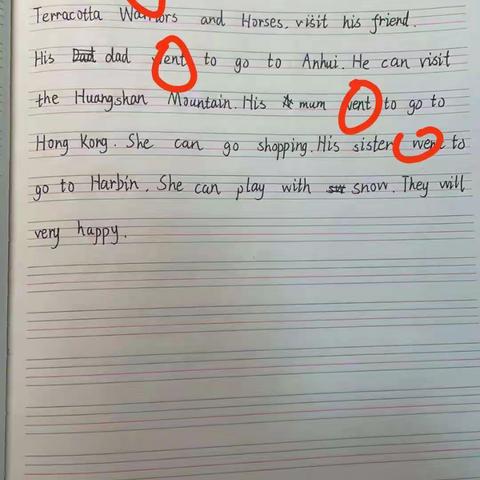 Terracotta Warriors and Horses, visit his friend.
His Dad dad went to go to Anhui. He can visit
the Huangshan Mountain. His mum went to go to
Hong Kong. She can go shopping. His sister went to
go to Harbin. She can play with snow. They will
very happy.